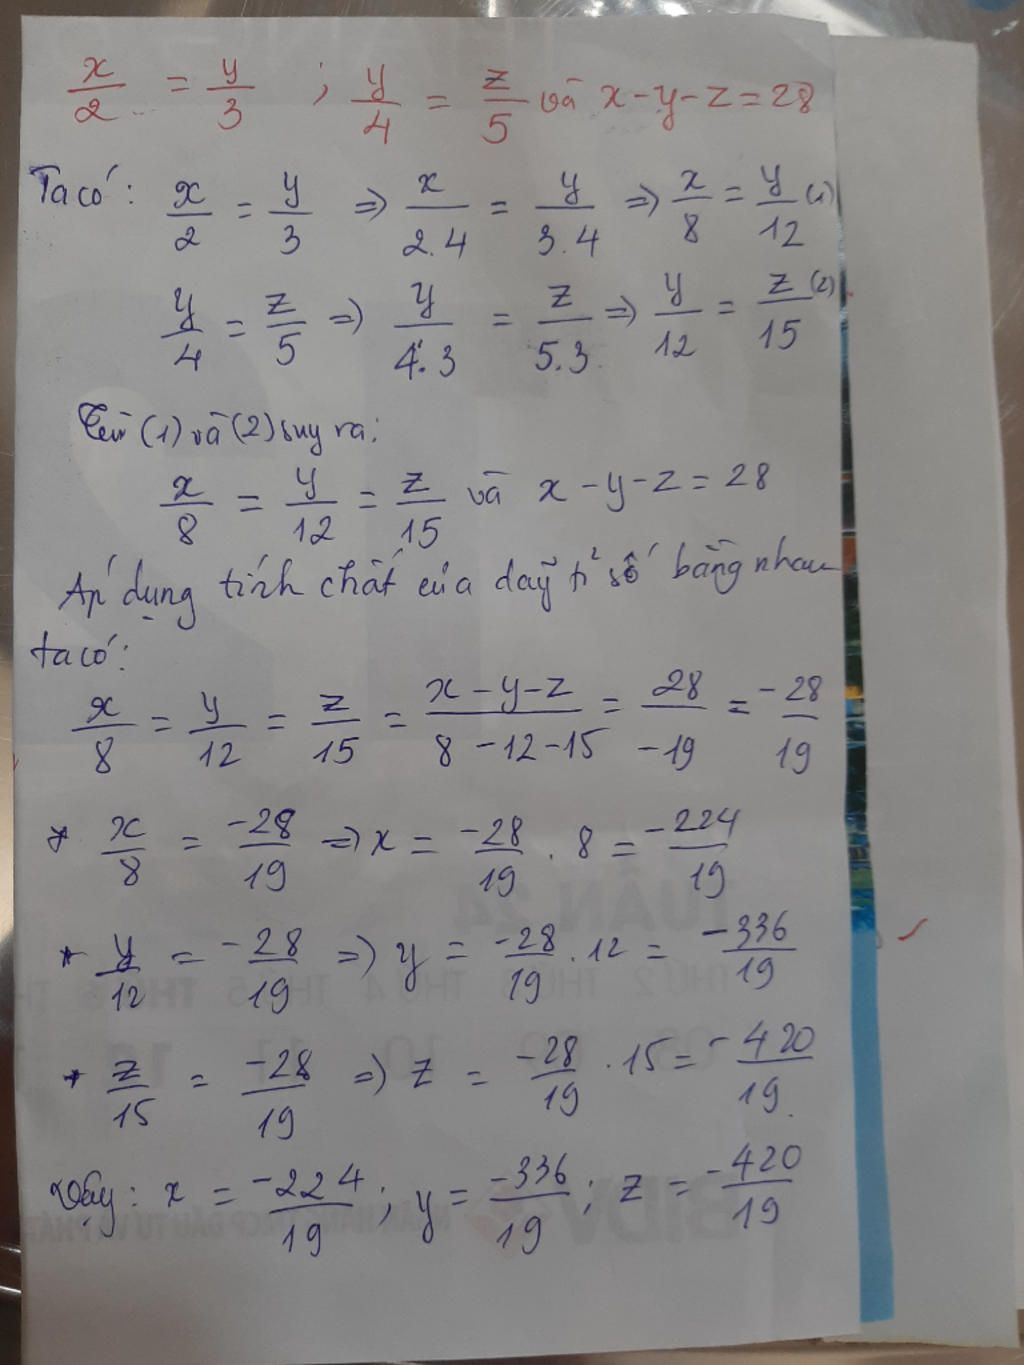 x/2 = y/3 ; y/4 = z/5 và x-y-z=28
Ta có: x/2 = y/3 => x/2.4 = y/3.4 => x/8 = y/12 (1)
y/4 = z/5 => y/4.3 = z/5.3 => y/12 = z/15 (2)
Từ (1) và (2) suy ra:
x/8 = y/12 = z/15 và x-y-z=28
Áp dụng tính chất của dãy tỉ số bằng nhau
ta có:
x/8 = y/12 = z/15 = x-y-z/8-12-15 = 28/-19 = -28/19
* x/8 = -28/19 => x = -28/19 . 8 = -224/19
* y/12 = -28/19 => y = -28/19 . 12 = -336/19
* z/15 = -28/19 => z = -28/19 . 15 = -420/19
Vậy: x = -224/19 ; y = -336/19 ; z = -420/19
TUẦN 24
BIDV